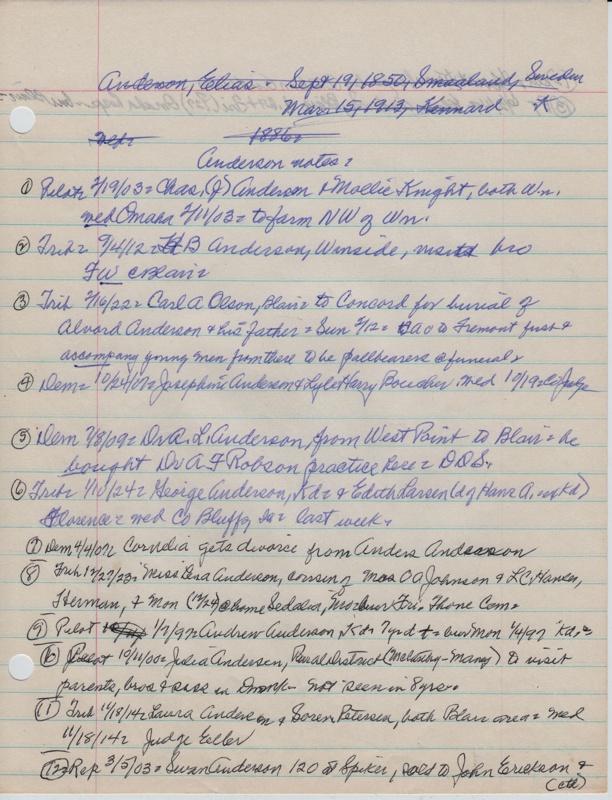 Anderson, Elias. Sept 19, 1850, Smaaland, Sweden
Mar. 15, 1913, Kennard
1886=
Anderson notes:
① Pilot= 2/19/03= Chas, (J) Anderson & Mollie Knight, both Wn.
wed Omaha 2/11/03= to farm NW of Wn.
② Trib= 9/4/12= B Anderson, Winside, visited bro
F W @ Blair=
③ Trib 2/16/22= Carl A Olson, Blair= to Concord for burial of
Alvord Anderson & his father= Sun 2/12= to Fremont first &
accompany young men from there to be pallbearers @ funeral.
④ Dem= 10/24/07= Josephine Anderson & Lyle Harry Boucher. wed 10/19= Co Judge
⑤ Dem 7/8/09= Dr A. L. Anderson, from West Point to Blair= he
bought Dr A F Robson practice here= DDS.
⑥ Trib= 1/10/24= George Anderson, Kd= & Edith Larsen (d of Hans A, of Kd)
Florence= wed Co Bluffs Ia= last week.
⑦ Dem 4/4/07= Cornelia gets divorce from Anders Anderson
⑧ Trib 12/27/23= Miss Anderson, cousin of Mrs O A Johnson & L C Hansen,
Herman, + Mon (12/24) @ home Sedalia, Mo= bur Fri. Thone Cem=
⑨ Pilot 1/7/97= Andrew Anderson, Kd= 7yrd += bur Mon 1/4/97 Kd.=
⑩ Pilot 10/11/00= Julia Andersen, Rural District to visit
parents, bros & siss in Dnmk= not seen in 8 yrs.
⑪ Trib 11/18/14= Laura Andersen & Soren Petersen, both Blair area= wed
11/18/14= Judge Eller
⑫ Rep 3/5/03= Swan Anderson 120 a Spiker, sold to John Erickson &
(ctd)